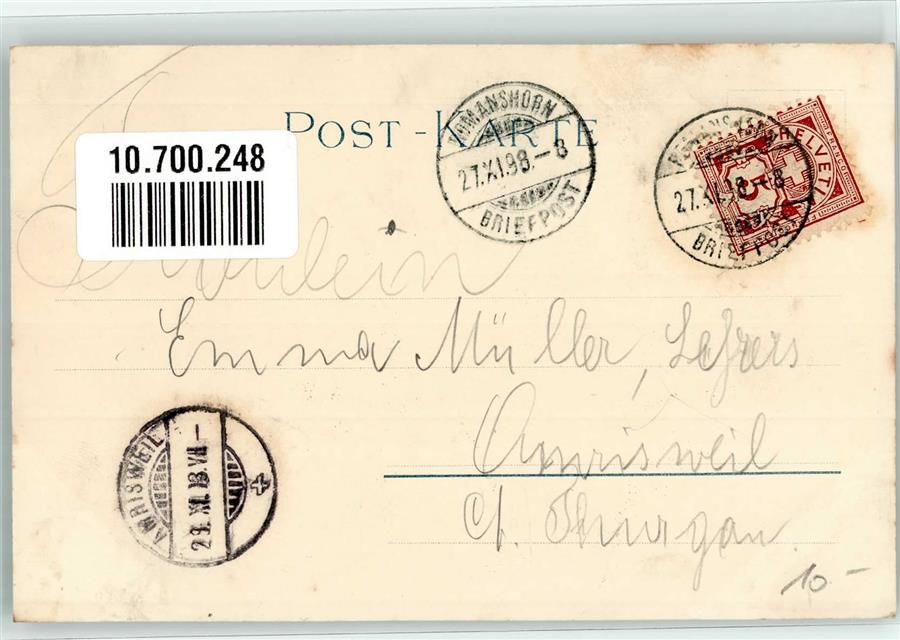 POST-KARTE
10.700.248
ROMANSHORN
27.XI.98.–8
BRIEFPOST
27.XI.98.–8
BRIEFPOST
5
HELVETIA
Fräulein
Emma Müller, Lehrers
Amrisweil
Ct. Thurgau
AMRISWEIL
29.XI.98.VII–
10–